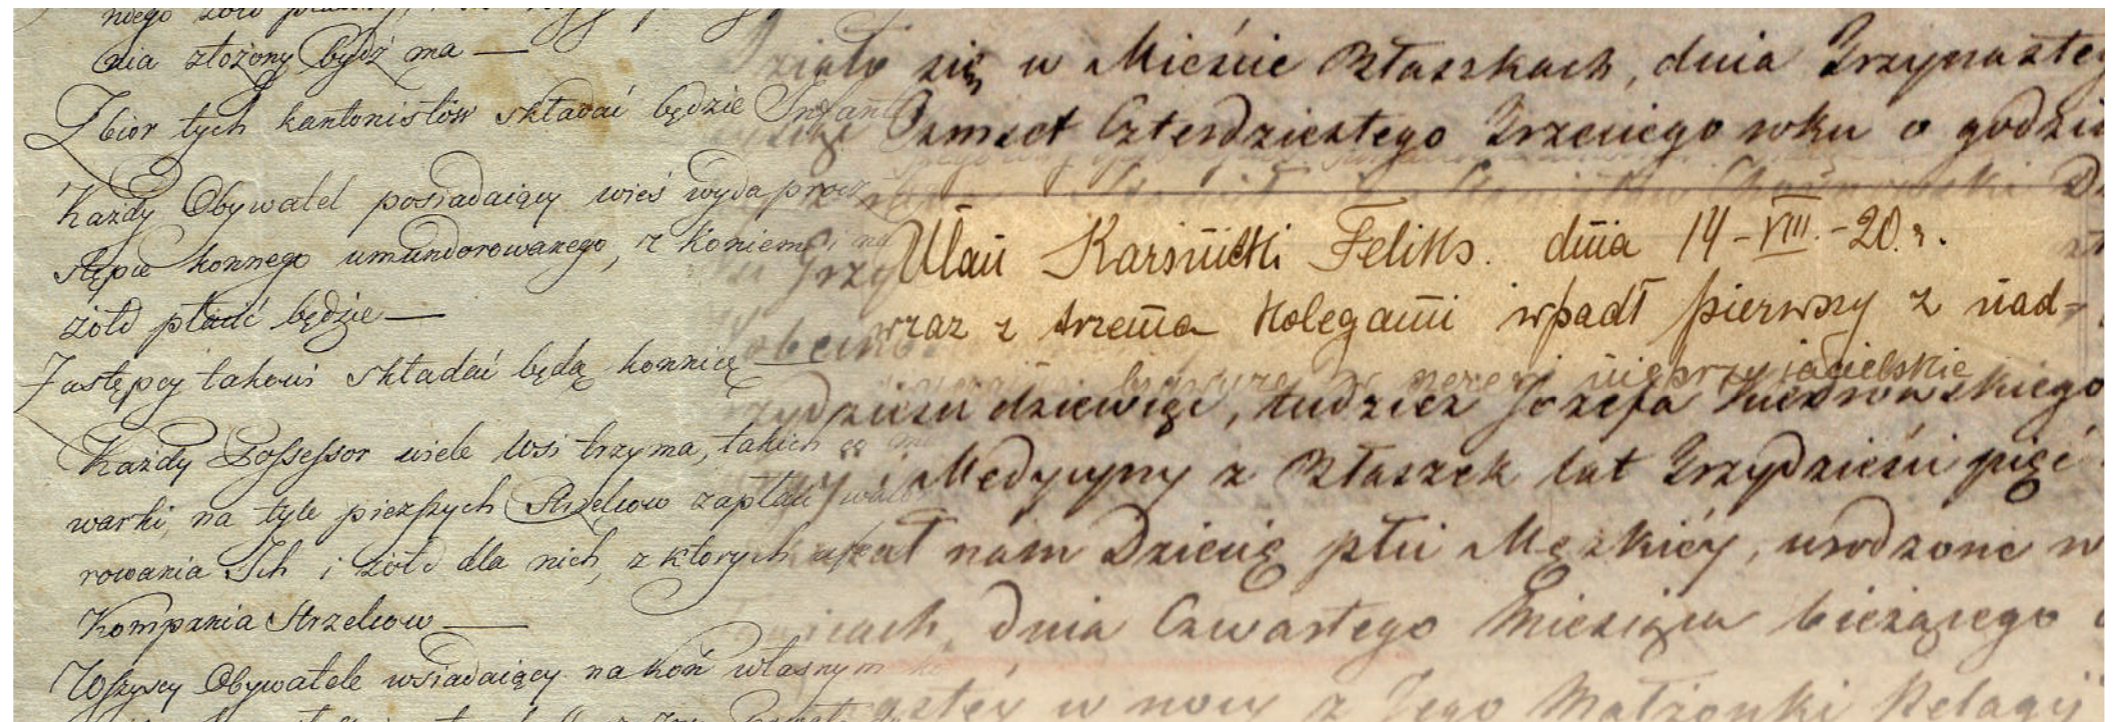 dnia złożony bydź ma —
Zbior tych kantonistów składać będzie
Każdy Obywatel posiadaiący wieś wyda procz
stępce konnego umundorowanego, z koniem, i na
żółd płacić będzie —
Zastępcy takowi składać będą konnicę —
Każdy Possessor wiele wsi trzyma, takich
warki, na tyle pieszych Strzelcow zapłaci
rowania Ich i żołd dla nich, z ktorych
Kompania Strzelcow —
Wszyscy Obywatele wsiadaiący na koń własnym
się w Mieście Błaszkach, dnia Trzynasteg
Ośmset Czterdziestego Trzeciego roku o godzin
Ułan Karśnicki Feliks. dnia 14-VIII.-20.r.
wraz z trzema kolegami wpadł pierwszy z nad-
nieprzyjacielskie
dziewięć, tudzież Józefa
Medycyny z Błaszek lat Trzydzieści pięć
nam Dziecię płci Męzkiéy, urodzone w
dnia Czwartego Miesiąca bieżącego
w nocy z Jego Małżonki Pelagij